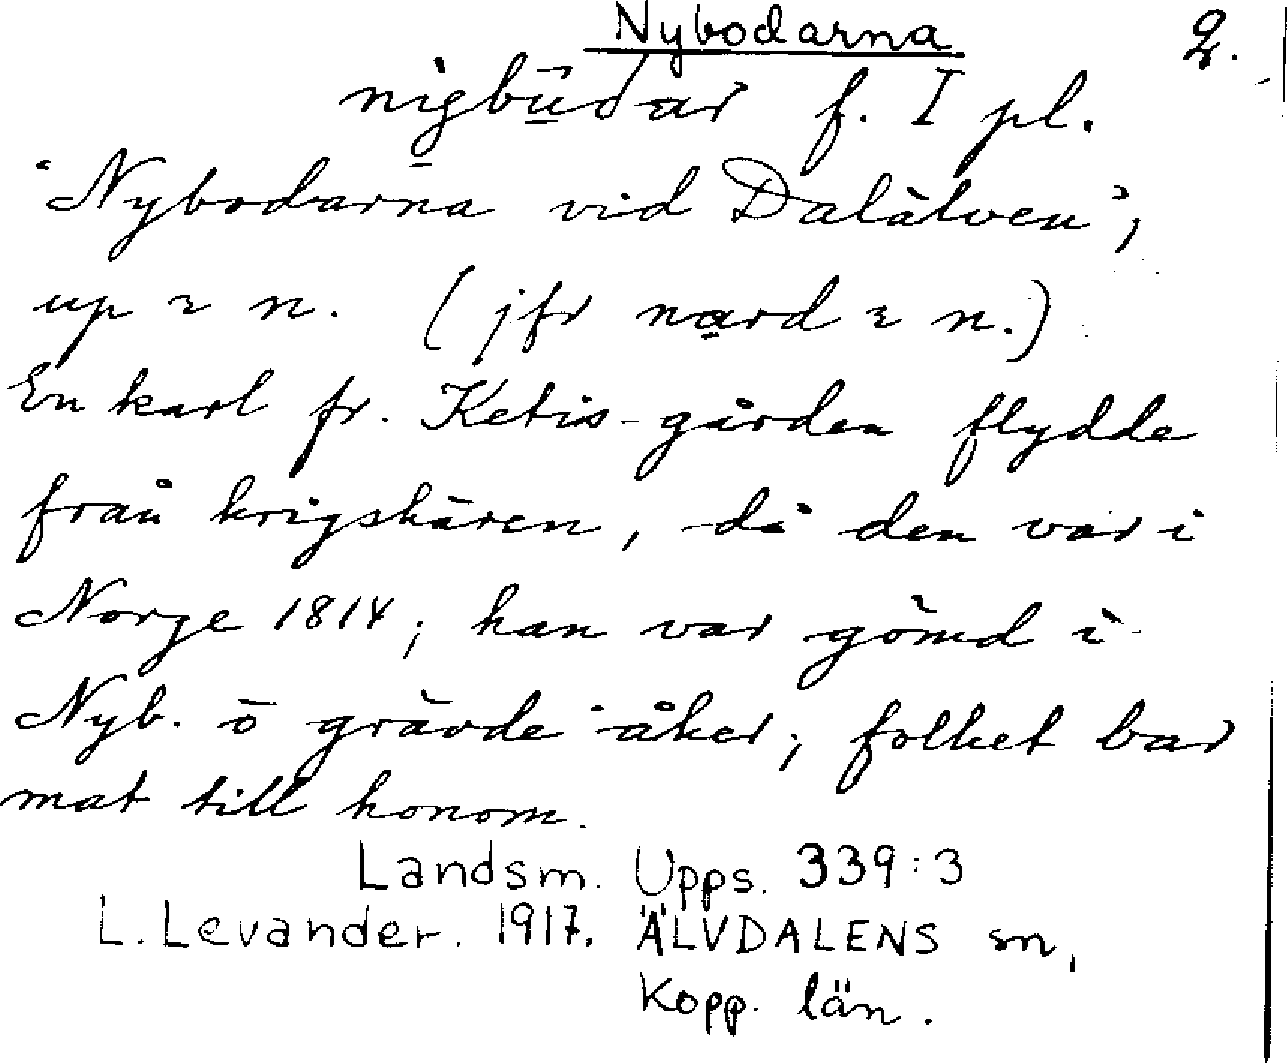 Nybodarna 2.
nigbūđar f. I pl.
"Nybodarna vid Dalälven",
up ɿ n. (jfr nard ɿ n.)
En karl fr. Ketis-gården flydde
från krigshären, då den var i
Norge 1814; han var gömd i
Nyb. o grävde åker; folket bar
mat till honom.
Landsm. Upps. 339:3
L. Levander. 1917. ÄLVDALENS sn,
Kopp. län.